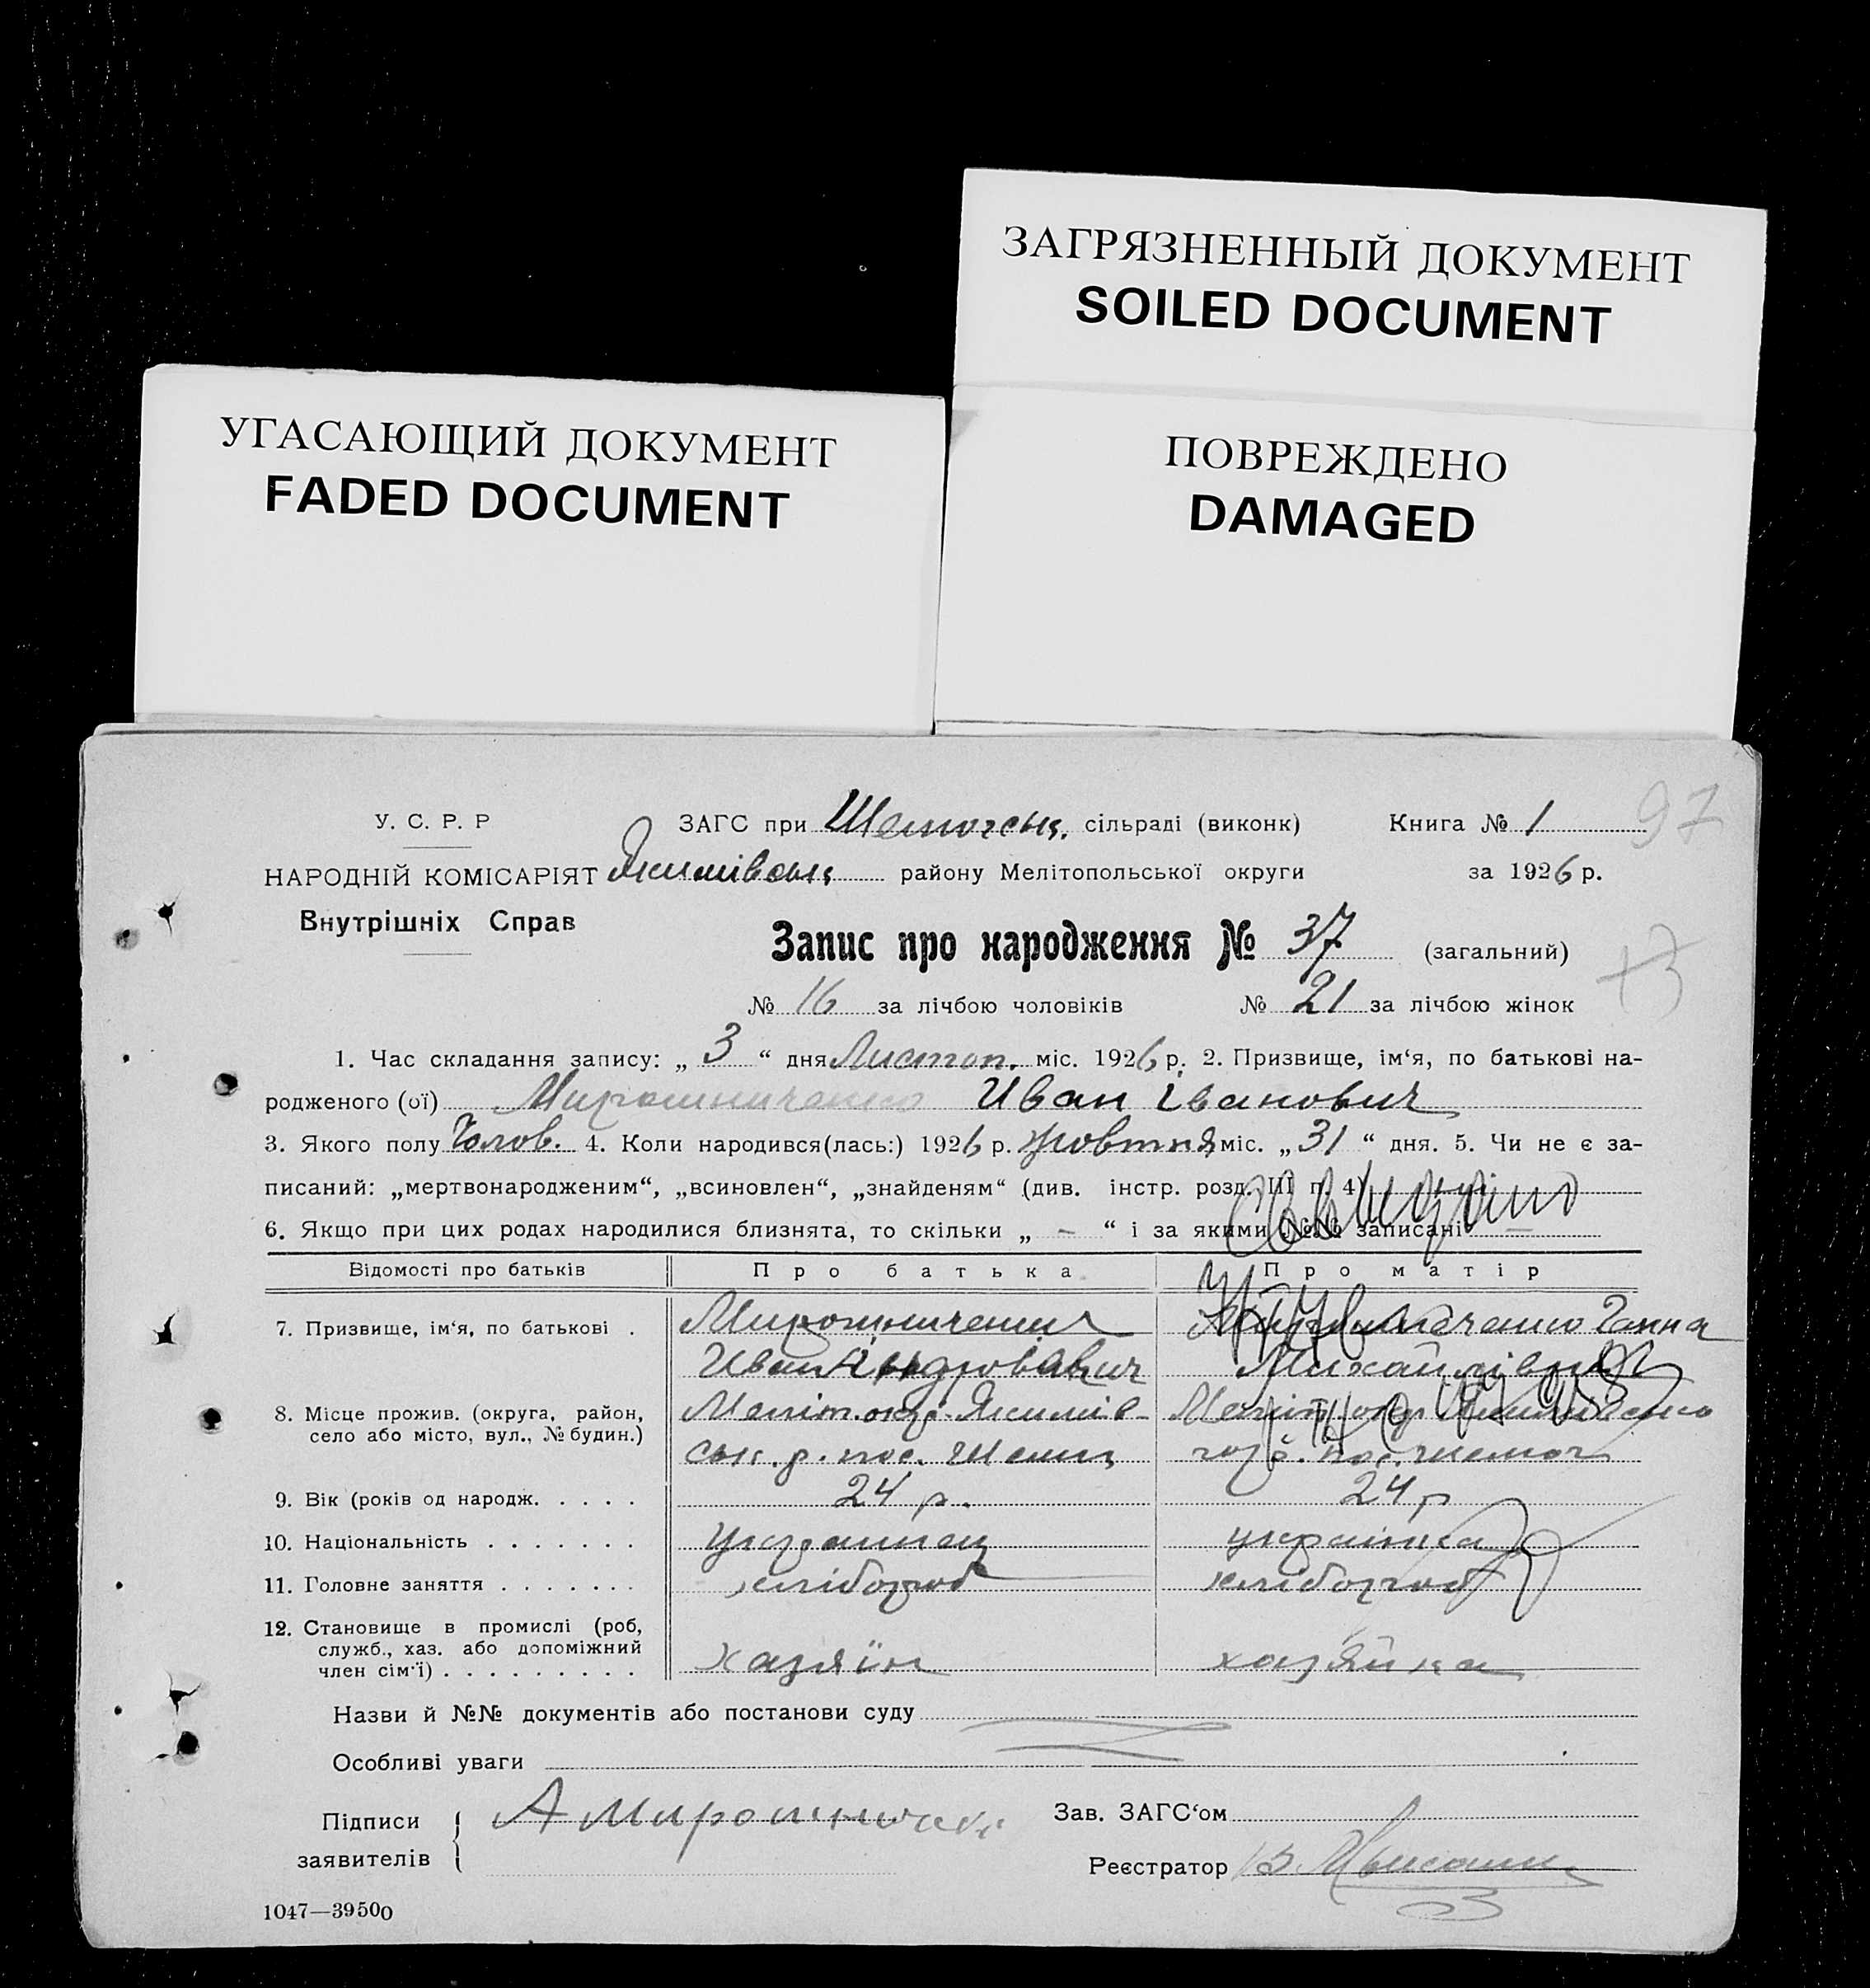 ЗАГРЯЗНЕННЫЙ ДОКУМЕНТ
SOILED DOCUMENT
УГАСАЮЩИЙ ДОКУМЕНТ
FADED DOCUMENT
ПОВРЕЖДЕНО
DAMAGED
97
У. С. Р. Р
ЗАГС при сільраді (виконк) Книга № 1
НАРОДНІЙ КОМІСАРІЯТ Якимівськ району Мелітопольської округи за 1926 р.
Внутрішніх Справ
Запис про народження № 37 (загальний)
№ 16 за лічбою чоловіків № 21 за лічбою жінок
1. Час складання запису: „ 3 “ дня Листоп. міс. 1926 р. 2. Призвище, ім‘я, по батькові на-
родженого (ої) Мирошниченко Иван Іванович
3. Якого полу Чолов. 4. Коли народився(лась:) 1926 р. жовтня міс. „ 31 “ дня. 5. Чи не є за-
писаний: „мертвонародженим“, „всиновлен“, „знайденям“ (див. інстр. розд. III п. 4)
6. Якщо при цих родах народилися близнята, то скільки „ – “ і за якими №№ записані —
Відомості про батьків Про батька Про матір
7. Призвище, ім‘я, по батькові . Мирошниченко Ганна
Иван Михайлівна
8. Місце прожив. (округа, район, Меліт. окр. Якимів-
село або місто, вул., № будин.) ськ. р. пос.
9. Вік (років од народж. . . . . 24 р. 24 р
10. Національність . . . . . . . українец українка
11. Головне заняття . . . . . . . хлібороб хлібороб
12. Становище в промислі (роб,
служб., хаз. або допоміжний
член сім‘ї) . . . . . . . . . хазяїн хазяйка
Назви й №№ документів або постанови суду
Особливі уваги
Підписи А Мирошниченк Зав. ЗАГС‘ом
заявителів Реєстратор
1047—39500